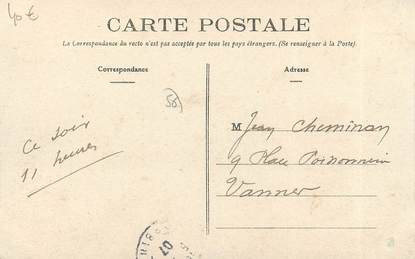 40€
CARTE POSTALE
La Correspondance du recto n'est pas acceptée par tous les pays étrangers. (Se renseigner à la Poste).
Correspondance
Adresse
58
Ce soir
11 heures
M Jean Cheminan
9 Place
Vannes
07